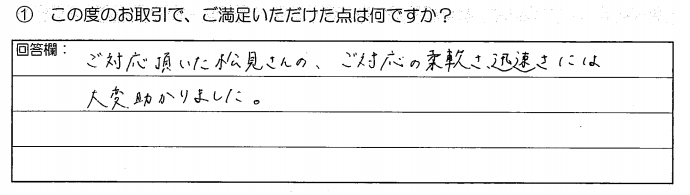 ① この度のお取引で、ご満足いただけた点は何ですか？
回答欄：
ご対応頂いた松見さんの、ご対応の柔軟さ迅速さには
大変助かりました。